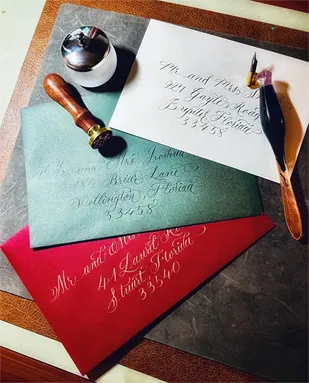 Mr. and Mrs. S
Gayle Road
Jupiter Florida
33458
Mr. and Mrs. Joshua
Briar Lane
Wellington, Florida
33458
Mr. and
41 Laurel
Stuart, Florida
33540